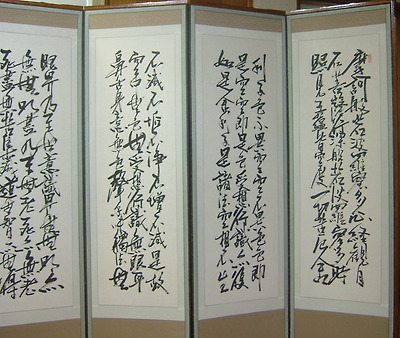 摩訶般若波羅蜜多心経観自
在菩薩行深般若波羅蜜多時
照見五蘊皆空度一切苦厄舎
利子色不異空空不異色色即
是空空即是色受想行識亦復
如是舎利子是諸法空相不生
不滅不垢不浄不増不減是故
空中無色無受想行識無眼耳
鼻舌身意無色聲香味觸法無
眼界乃至無意識界無無明亦
無無明尽乃至無老死亦無老
死盡無苦集滅道無智亦無得